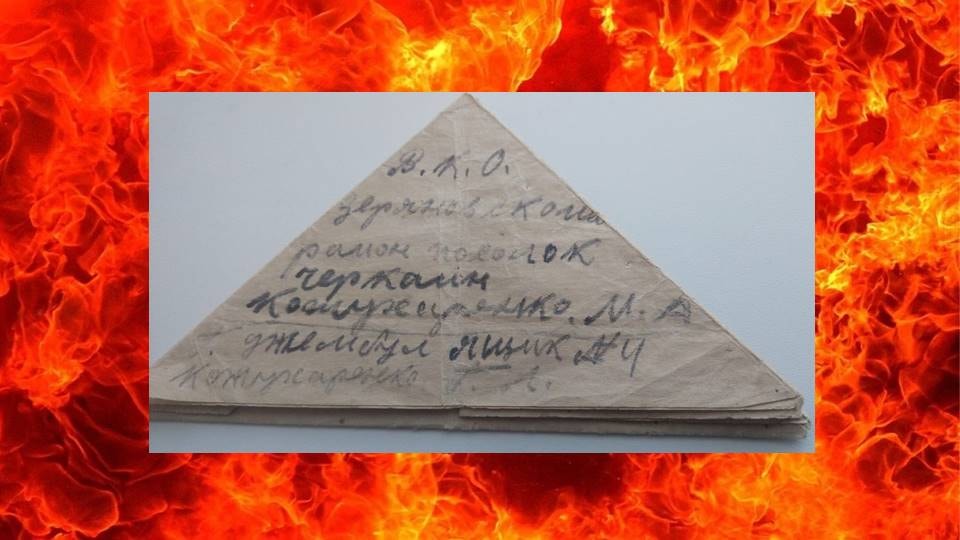 В. К. О.
Зеряновском
район посолок
черкаин
Кожухаренко. М. А
джембул ящик №4
Кожухаренко Г. Л.